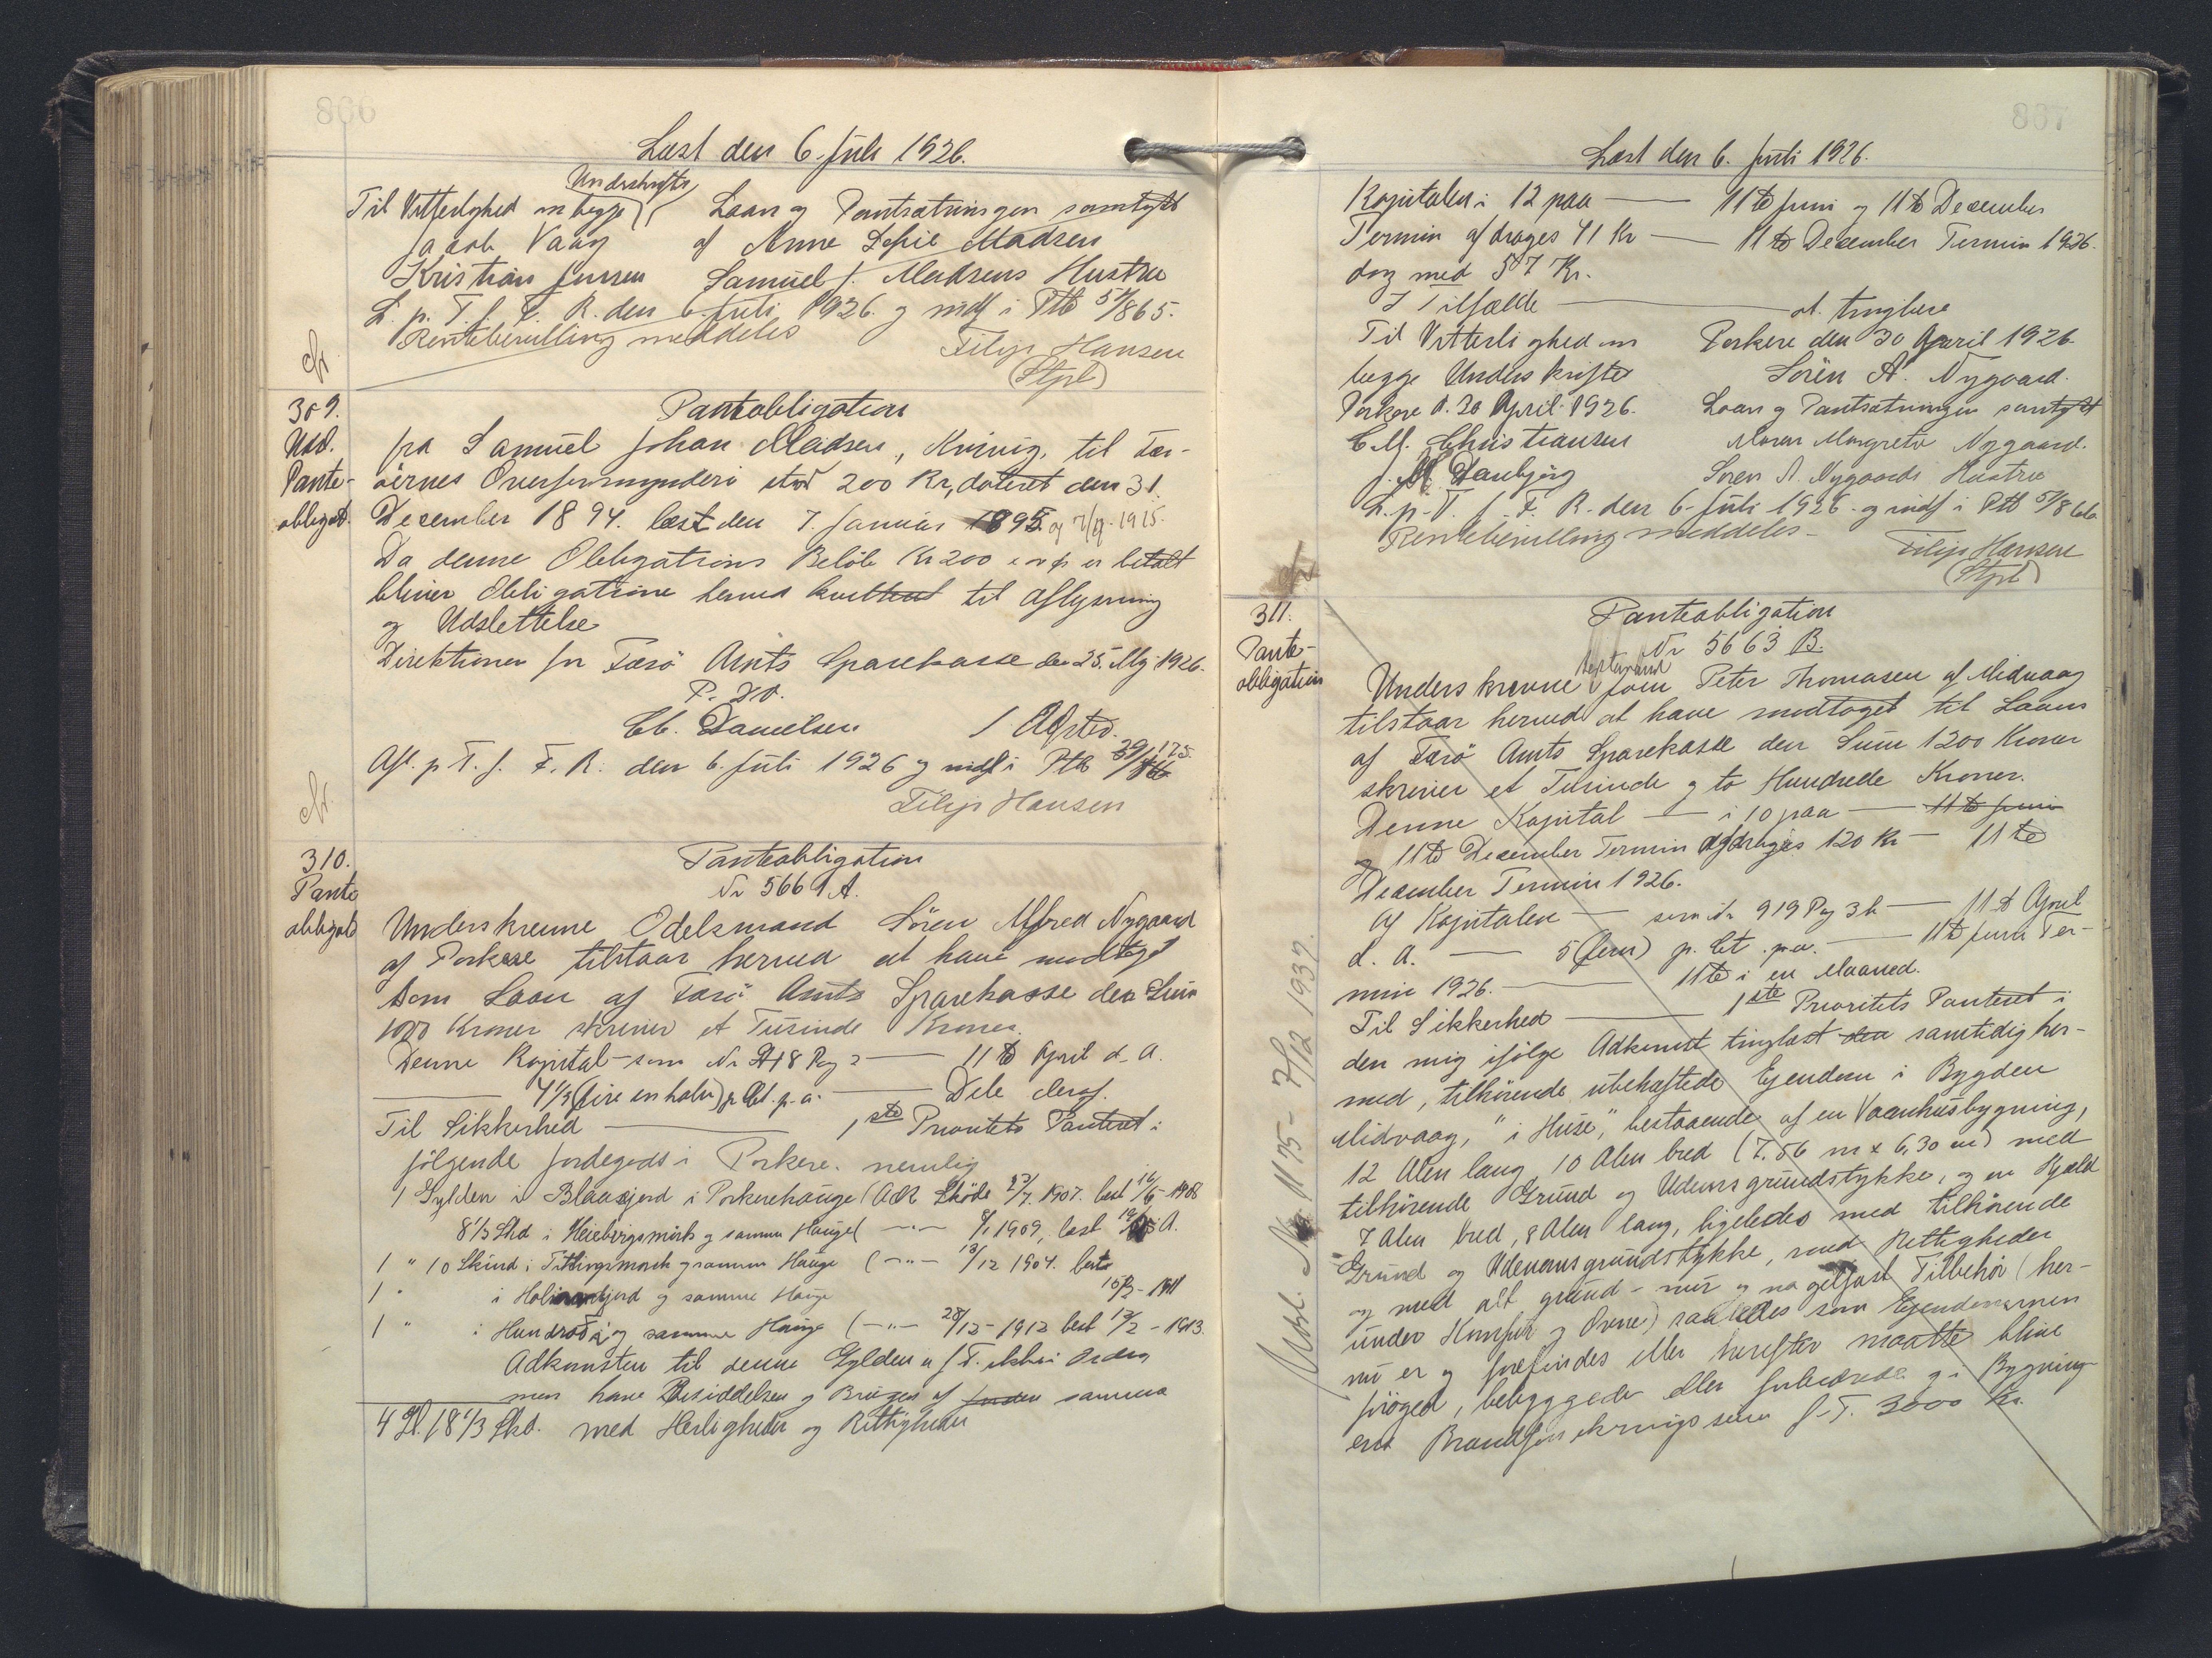 866
Læst den 6. Juli 1926.
Underskrifter
Til Vitterlighed om begge
Jacob Vaag
Kristian Jensen
Laan og Pantsætningen samtykt
af Anne Sofie Madsen
Samuel J. Madsens Hustru
L. p. T. f. F. R. den 6. Juli 1926. og indf i Ptb 57/865.
Rentebevilling meddeles
Filip Hansen
(Stpl)
309.
Uds.
Pante-
obligat.
Panteobligation
fra Samuel Johan Madsen, Kvivig, til Fær-
öernes Overformynderi stor 200 Kr, dateret den 31.
December 1894. læst den 7. Januar 1895. og 7/9-1915.
Da denne Obligations Belöb Kr 200 er betalt
bliver Obligationen herved kvitteret til Aflysning
og Udslettelse
Direktionen for Færö Amts Sparekasse den 25. Maj 1926.
P. D. V.
Cb. Danielsen
Afl. p T. f. F. R. den 6. Juli 1926 og indf i Ptb 39/125.
Filip Hansen
310.
Pante
obligat
Panteobligation
Nr 5669 A.
Underskrevne Odelsmand Sören Alfred Nygaard
af Porkere tilstaar herved at have modtaget
som Laan af Færö Amts Sparekasse den Sum
1000 Kroner skriver et Tusinde Kroner.
Denne Kapital - som Nr 918 Pag 2 — 11te April d. A.
— 4 1/2 (fire en halv) p Ct. p. a. — Dele deraf.
Til Sikkerhed — 1ste Prioritets Panteret i
fölgende Jordegods i Porkere. nemlig
1 Gylden i Blaasjord i Porkerehauge (Adk Sköde 27/7. 1907. læst 16/6-1908
8 1/3 Skd i Heiebergsmörk og samme Hauge ( — " — 8/1 1909, læst d. A.
1 " 10 Skind i Tittlingsmork og samme Hauge ( — " — 13/12 1904. læst
1 " i og samme Hauge 10/3-1911
1 " i og samme Hauge ( — " — 28/12-1912 læst 12/2-1913.
Adkomsten til denne Gylden er f. T. ikke i Orden
men have Besiddelsen og Brugen af samme
4 Gl. 18 1/3 Skd. med Herligheder og Rettigheder
867
Læst den 6. Juli 1926.
Kapitalen i 12 paa — 11te Juni og 11te December
Termin afdrages 41 Kr — 11te December Termin 1926.
dog med 57 Kr.
I Tilfælde — at tinglæse
Til Vitterlighed om
begge Underskrifter
Porkere d. 30 April 1926.
C. M. Christiansen
J. M. Danbjörg
Porkere den 30 April 1926
Sören A. Nygaard.
Laan og Pantsætningen samtykt
Maren Margrete Nygaard.
Sören A. Nygaards Hustru
L. p. T. f. F. R. den 6. Juli 1926. og indf i Ptb 57/866
Rentebevilling meddeles -
Filip Hansen
(Stpl)
311.
Pante-
obligation
Udsl. No 1175 - 7/12 1937.
Panteobligation
Nr 5663 B.
Underskrevne Joen Peter Thomasen af Midvaag
tilstaar herved at have modtaget til Laans
af Færö Amts Sparekasse den Sum 1200 Kroner
skriver et Tusinde og to Hundrede Kroner.
Denne Kapital — i 10 paa — 11te Juni
og 11te December Termin afdrages 120 Kr — 11te
December Termin 1926.
Af Kapitalen — som Nr 919 Pag 3 b — 11te April
d. A. — 5 (fem) p. Ct. p. a. — 11te Juni Ter-
min 1926. — 11te i en Maaned.
Til Sikkerhed — 1ste Prioritets Panteret i
den mig ifölge Adkomst tinglæst den samtidig her-
med, tilhörende ubehæftede Ejendom i Bygden
Midvaag, "i Huse", bestaaende af en Vaanhusbygning,
12 Alen lang, 10 Alen bred (7.56 m x 6,30 m) med
tilhörende Grund og Udenomsgrundstykke, og en Hjald
7 Alen bred, 8 Alen lang, ligeledes med tilhörende
Grund og Udenomsgrundstykke, med Rettigheder
og med alt grund- mur og nagelfast Tilbehör (her-
under Komfur og Ovne) saaledes som Ejendommen
nu er og forefindes eller herefter maatte blive
foröget, bebygget eller forbedret og i Bygning-
ens Brandforsikringssum f. T. 3000 Kr.